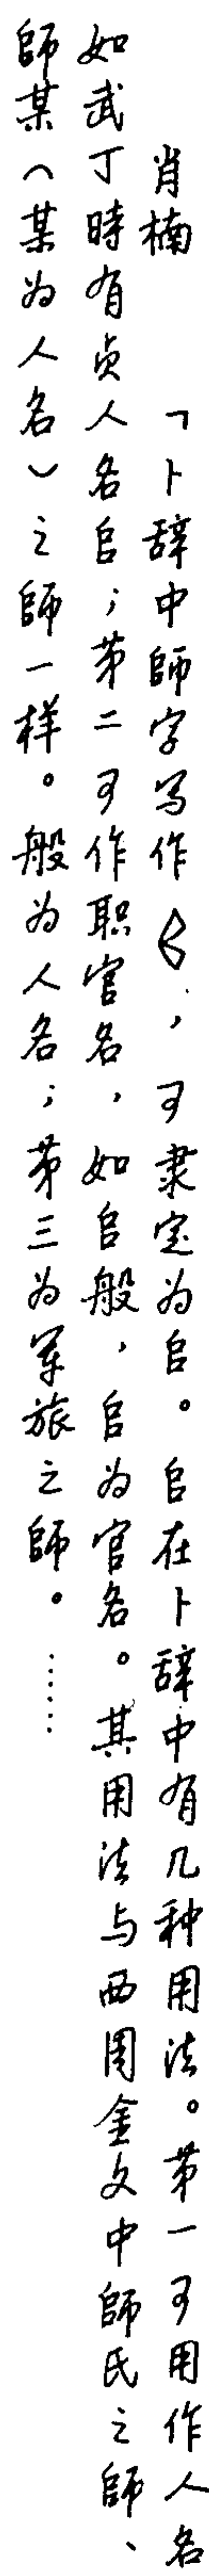 肖楠 「卜辞中師字写作𠂤，可隶定为𠂤。𠂤在卜辞中有几种用法。第一可用作人名
如武丁時有贞人名𠂤；第二可作职官名，如𠂤般，𠂤为官名。其用法与西周金文中師氏之師、
師某（某为人名）之師一样。般为人名；第三为军旅之師。……